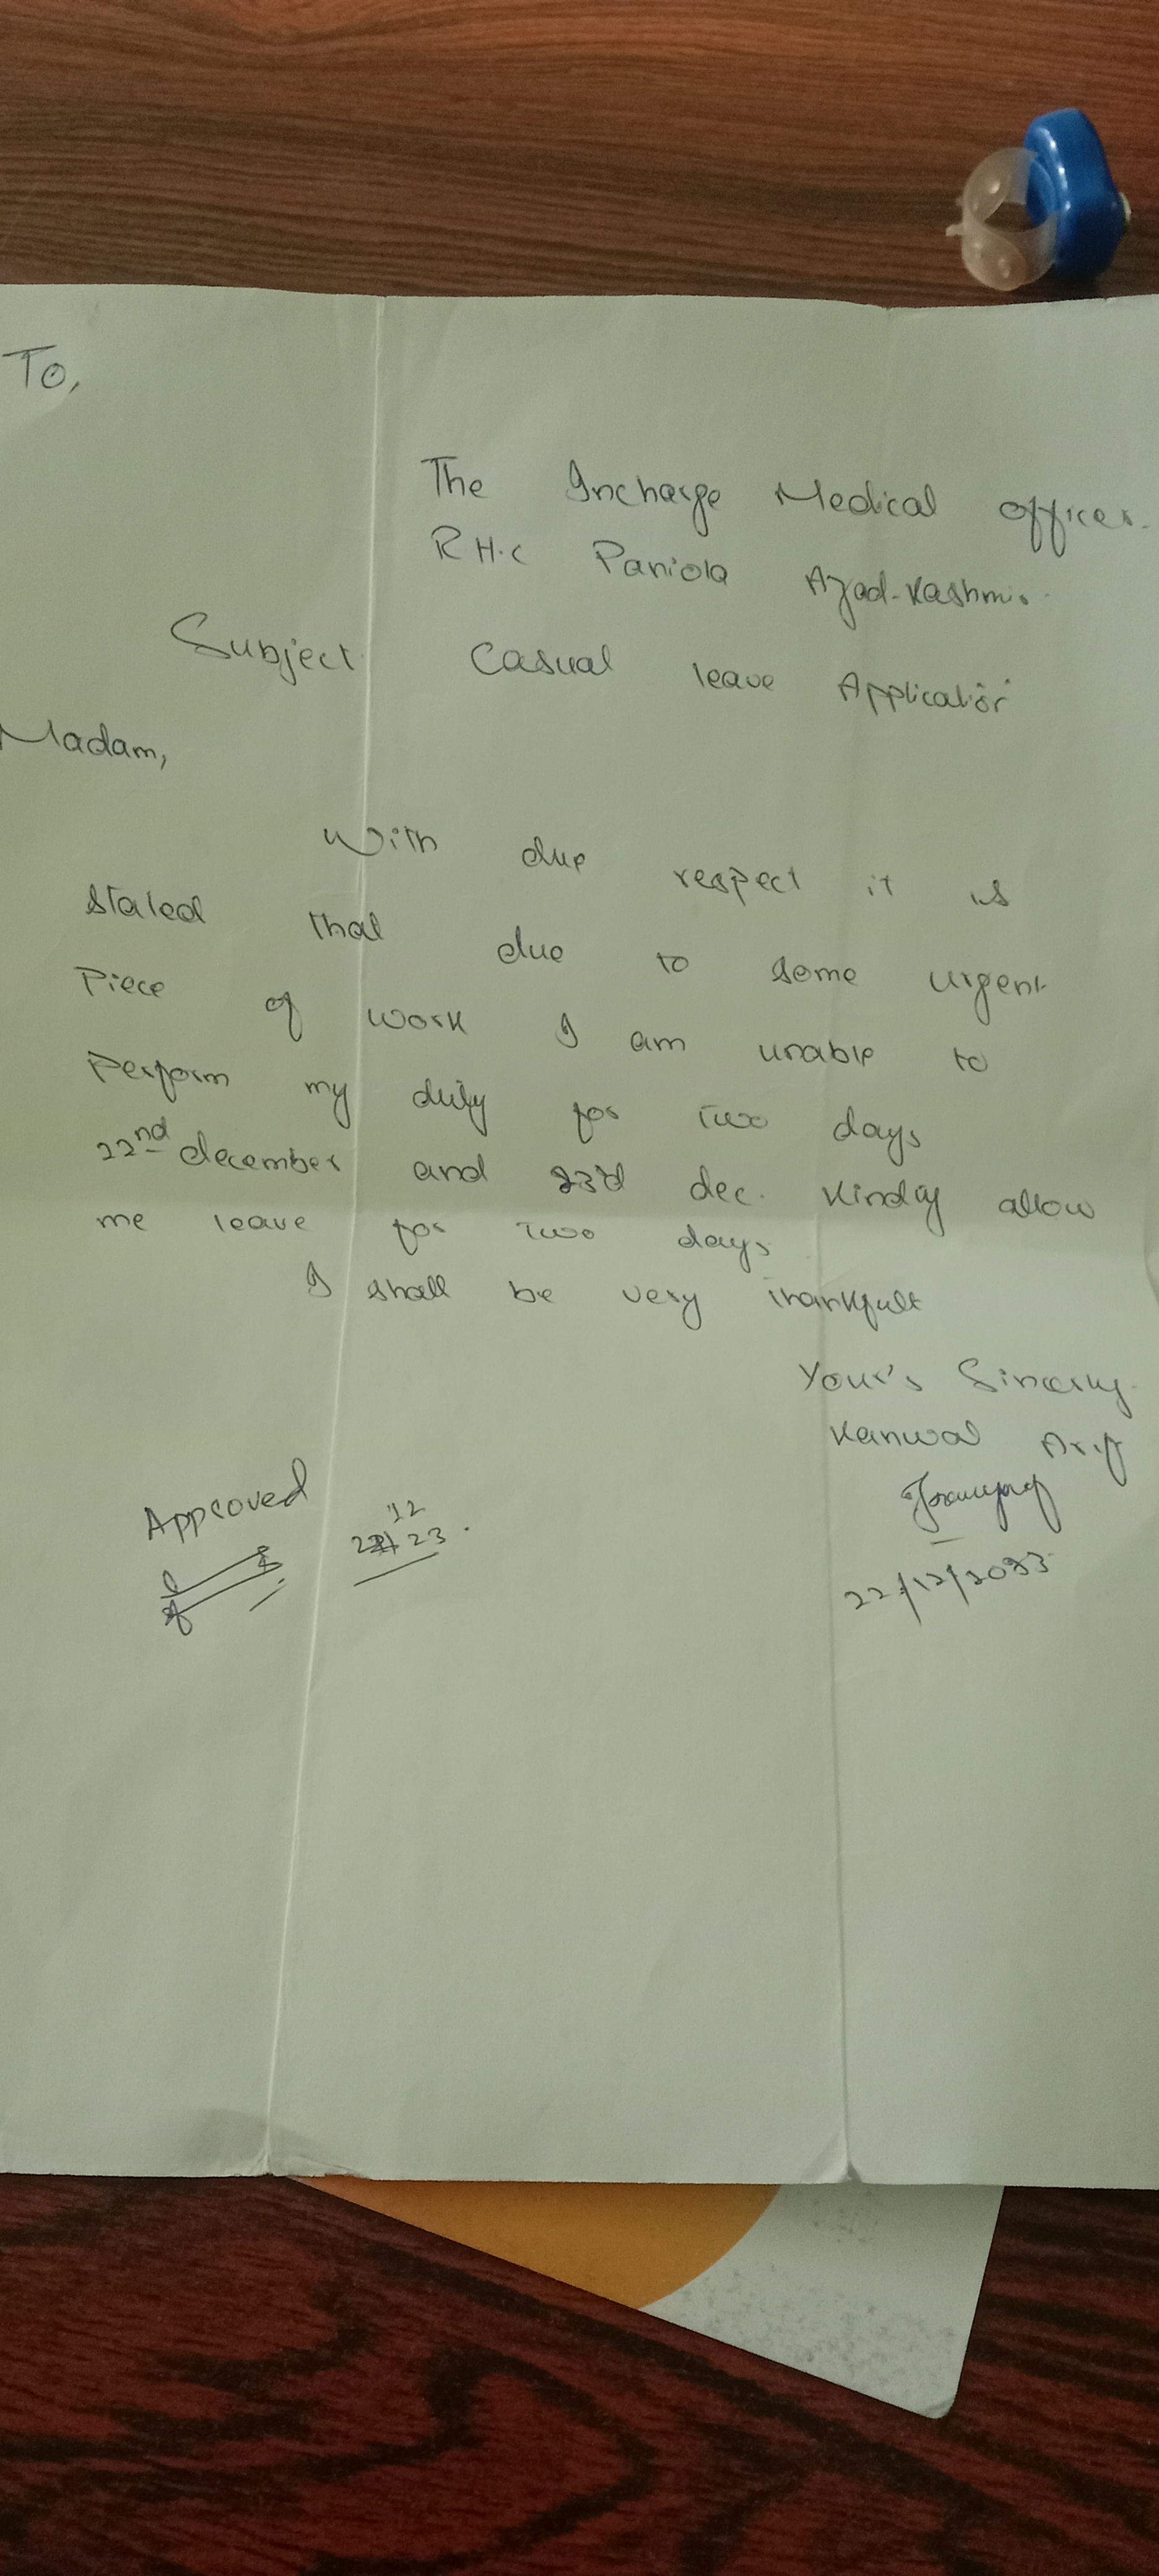 To,
The Incharge Medical officer.
R H.C Paniola Azad-Kashmir.
Subject Casual leave Application
Madam,
With due respect it is
stated that due to some urgent
Piece of work I am unable to
Perform my duty for Two days
22nd december and 23rd dec. Kindly allow
me leave for two days
I shall be very thankfull
Your's Sincerly
Kanwal Arif
22/12/2023
Approved